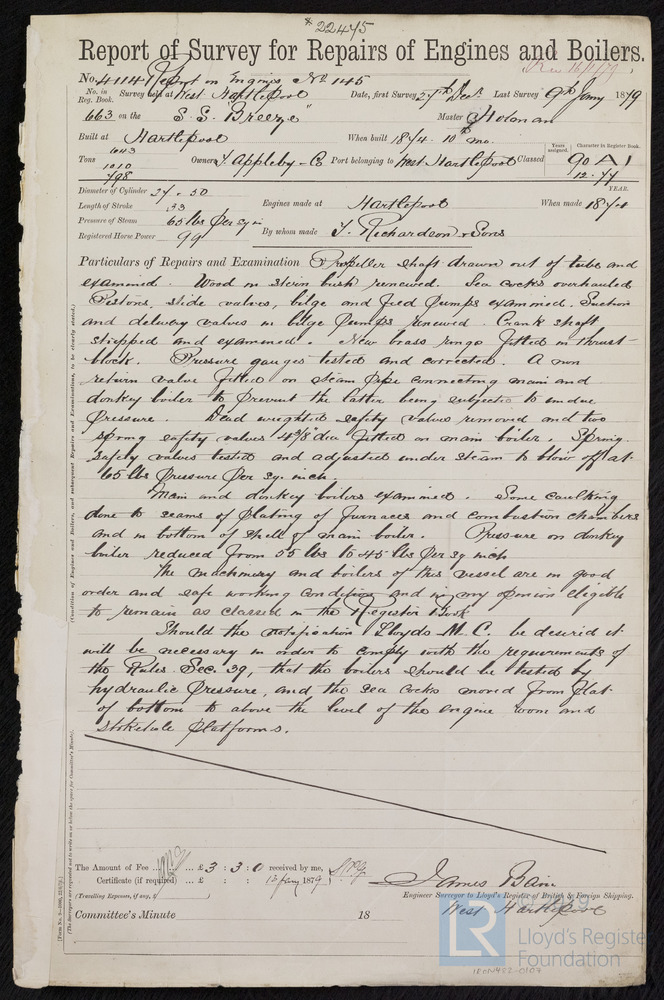 * 22475
Report of Survey for Repairs of Engines and Boilers.
No. 4114 Report on Engines No 145
Rec 16/1/79
No. in Reg. Book. Survey held at West Hartlepool Date, first Survey 27th Decr. Last Survey 9th Jany 1879
663 on the "S.S. Breeze" Master Holman
Built at Hartlepool When built 1874 10th mo.
Tons 1043 1010 798 Owners J. Appleby & Co Port belonging to West Hartlepool Classed Years assigned. Character in Register Book. 90 A 1 12.77
Diameter of Cylinder 27 - 50 YEAR.
Length of Stroke 33 Engines made at Hartlepool When made 1874
Pressure of Steam 65 lbs per sq in
Registered Horse Power 99 By whom made T. Richardson & Sons
Particulars of Repairs and Examination Propeller shaft drawn out of tube and
examined. Wood in stern bush renewed. Sea cocks overhauled
Pistons, slide valves, bilge and feed pumps examined. Suction
and delivery valves in bilge pumps renewed. Crank shaft
stripped and examined. New brass rings fitted in thrust-
block. Pressure gauges tested and corrected. A non
return valve fitted on steam pipe connecting main and
donkey boiler to prevent the latter being subjected to undue
pressure. Dead weighted safety valves removed and two
spring safety valves 4 3/8" dia fitted on main boiler. Spring
safety valves tested and adjusted under steam to blow off at
65 lbs pressure per sq. inch.
Main and donkey boilers examined. Some caulking
done to seams of plating of furnaces and combustion chambers
and in bottom of shell of main boiler. Pressure on donkey
boiler reduced from 55 lbs to 45 lbs per sq inch
The machinery and boilers of this vessel are in good
order and safe working condition and in my opinion eligible
to remain as classed in the Register Book
Should the notification Lloyds M.C. be desired it
will be necessary in order to comply with the requirements of
the Rules Sec. 39, that the boilers should be tested by
hydraulic pressure, and the sea cocks moved from flat
of bottom to above the level of the engine room and
stokehole platforms.
(Condition of Engines and Boilers, and subsequent Repairs and Examinations, to be clearly stated.)
The Amount of Fee ... £ 3 : 3 : 0 received by me,
Certificate (if required) ... £ : : 13 Jany 1879
(Travelling Expenses, if any, £ )
James Bain
Engineer Surveyor to Lloyd's Register of British & Foreign Shipping.
West Hartlepool
Committee's Minute 18
LR
Lloyd's Register
Foundation
© 2019
IRON452-0107